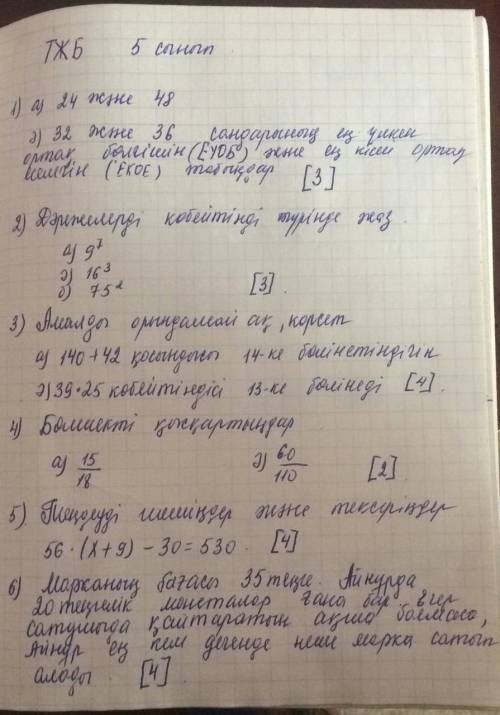 ТЖБ 5 сынып
1) а) 24 және 48
ә) 32 және 36 сандарының ең үлкен
ортақ бөлгішін (ЕҮОБ) және ең кіші ортақ
еселігін (ЕКОЕ) табыңдар [3]
2) Дәрежелерді көбейтінді түрінде жаз.
а) 9⁷
ә) 16³
б) 75² [3].
3) Амалды орындамай ақ, көрсет
а) 140+42 қосындысы 14-ке бөлінетіндігін
ә) 39•25 көбейтіндісі 13-ке бөлінеді [4].
4) Бөлшекті қысқартыңдар
а) 15/18 ә) 60/110 [2]
5) Теңдеуді шешіңдер және тексеріңдер
56•(x+9)-30=530. [4]
6) Марканың бағасы 35 теңге. Айнұрда
20 теңгелік монеталар ғана бар. Егер
сатушыда қайтаратын ақша болмаса,
Айнұр ең кем дегенде неше марка сатып
алады. [4].